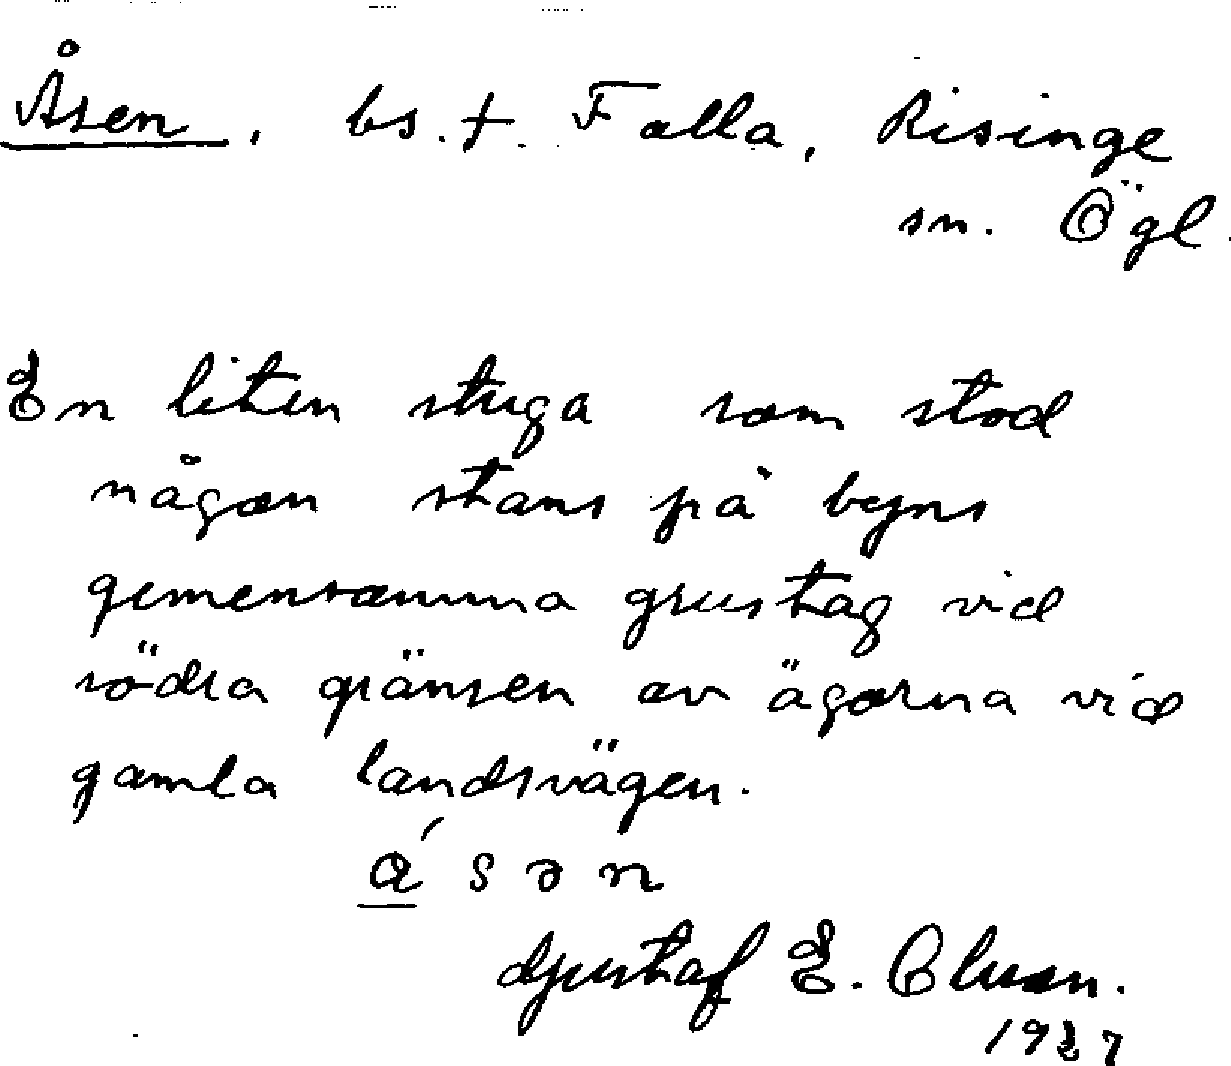 Åsen, bs. t. Falla, Risinge
sn. Ögl.
En liten stuga som stod
någon stans på byns
gemensamma grustag vid
södra gränsen av ägorna vid
gamla landsvägen.
a´ s ə n
Gustaf E. Olsson.
1927